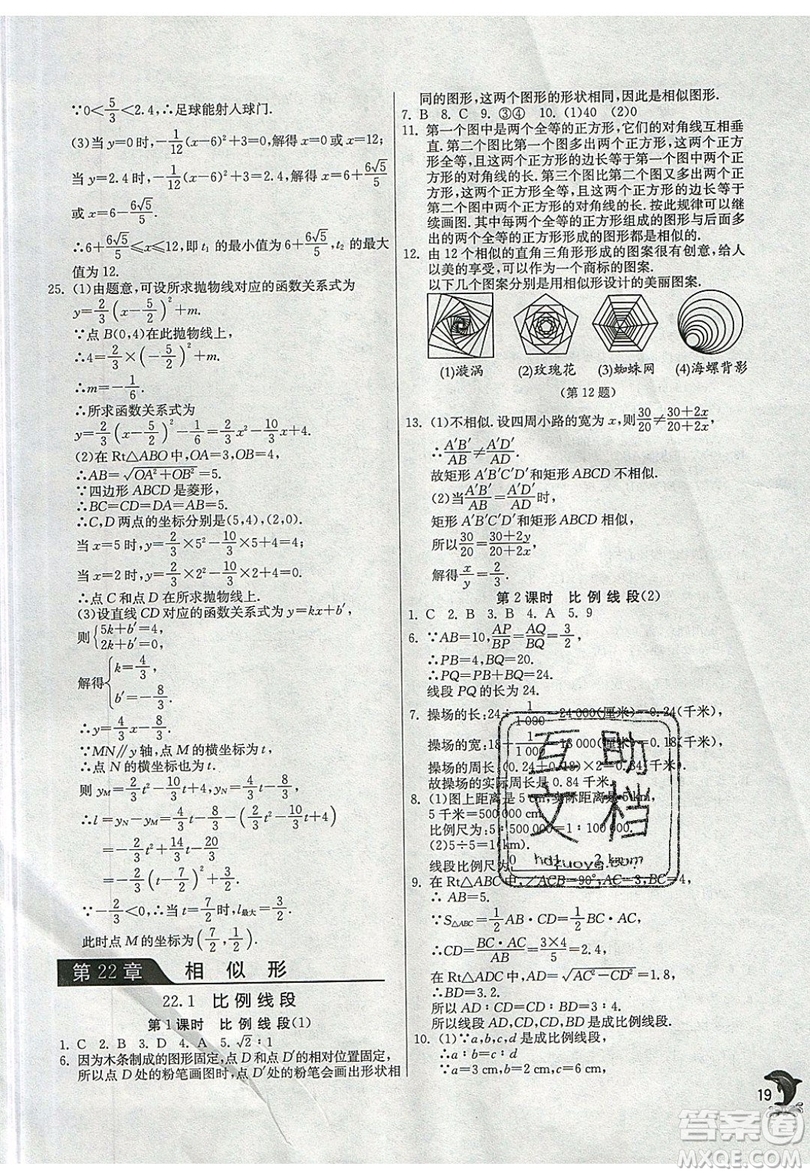 ∵0<5/3<2.4,∴足球能射入球门.
(3)当 y=0 时,-1/12(x-6)²+3=0,解得 x=0 或 x=12;
当 y=2.4 时,-1/12(x-6)²+3=0,解得 x=6+6√5/5
或 x=6-6√5/5.
∴6+6√5/5≤x≤12,即 t₁ 的最小值为 6+6√5/5,t₂ 的最大
值为 12.
25. (1)由题意,可设所求抛物线对应的函数关系式为
y=2/3(x-5/2)²+m.
∵点 B(0,4)在此抛物线上,
∴4=2/3×(-5/2)²+m.
∴m=-1/6.
∴所求函数关系式为
y=2/3(x-5/2)²-1/6=2/3x²-10/3x+4.
(2)在 Rt△ABO 中,OA=3,OB=4,
∴AB=√OA²+OB²=5.
∵四边形 ABCD 是菱形,
∴BC=CD=DA=AB=5.
∴C,D 两点的坐标分别是(5,4),(2,0).
当 x=5 时,y=2/3×5²-10/3×5+4=4;
当 x=2 时,y=2/3×2²-10/3×2+4=0,
∴点 C 和点 D 在所求抛物线上.
(3)设直线 CD 对应的函数关系式为 y=kx+b′,
则{5k+b′=4,
2k+b′=0,
解得{k=4/3,
b′=-8/3.
∴y=4/3x-8/3.
∵MN∥y 轴,点 M 的横坐标为 t,
∴点 N 的横坐标也为 t.
则 y_M=2/3t²-10/3t+4,y_N=4/3t-8/3.
∴l=y_N-y_M=4/3t-8/3-(2/3t²-10/3t+4)
=-2/3t²+14/3t-20/3
=-2/3(t-7/2)²+3/2.
∵-2/3<0,∴当 t=7/2 时,l最大=3/2,
此时点 M 的坐标为(7/2,1/2).
第 22 章 相似形
22.1 比例线段
第 1 课时 比例线段(1)
1. C 2. B 3. D 4. A 5. √2∶1
6. 因为木条制成的图形固定,点 D 和点 D′的相对位置固定,
所以点 D 处的粉笔画图时,点 D′处的粉笔会画出形状相
同的图形,这两个图形的形状相同,因此是相似图形.
7. B 8. C 9. ③④ 10. (1)40 (2)0
11. 第一个图中是两个全等的正方形,它们的对角线互相垂
直.第二个图比第一个图多出两个正方形,这两个正
方形全等,且这两个正方形的边长等于第一个图中两个正
方形的对角线的长.第三个图比第二个图又多出两个正
方形,这两个正方形全等,且这两个正方形的边长等于
第二个图中大正方形的对角线的长.按此规律可以继
续画图.由两个全等的正方形组成的图形与其他的两
个全等的正方形组成的图形都是相似的.
12. 由 12 个相似的直角三角形形成的图案很有创意,给人
以美的享受,可以作为一个商标的图案.
以下几个图案分别是用相似形设计的美丽图案.
(1)漩涡 (2)玫瑰花 (3)蜘蛛网 (4)海螺背影
(第 12 题)
13. (1)不相似.设四周小路的宽为 x,则30/20≠(30+2x)/(20+2x).
∴A′B′/AB≠A′D′/AD.
故矩形 A′B′C′D′和矩形 ABCD 不相似.
(2)当A′B′/AB=A′D′/AD时,
矩形 A′B′C′D′和矩形 ABCD 相似,
所以30/20=(30+2y)/(20+2x).
解得x/y=2/3.
第 2 课时 比例线段(2)
1. C 2. B 3. B 4. A 5. 9
6. ∵AB=10,AP/BP=AQ/BQ=3/2,
∴PB=4,BQ=20.
线段 PQ 的长为 24.
7. 操场的长:24÷1/1 000=24 000(厘米)=0.24(千米),
操场的宽:18÷1/1 000
操场的周长:(0.24+0.18)×2=0.84(千米).
故操场的实际周长是 0.84 千米.
8. (1)图上距离是 5 cm,实际距离是 5 km.
5 千米=500 000 cm
比例尺为:5∶500 000=1∶100 000.
(2)5÷5=1(km).
线段比例尺为 0 1 2 km
9. 在 Rt△ABC 中,∠ACB=90°,AC=4,BC=3,
∴ AB=5.
∵S△ABC=1/2 AB·CD=1/2 BC·AC,
∴CD=BC·AC/AB=3×4/5=2.4.
所以 AD=√AC²-CD²=√4²-2.4²=3.2.
所以 AC∶AD=CB∶CD.
所以线段 AC,AD,CB,CD 是成比例线段.
10. (1)∵a,b,c,d 是成比例线段,
∴a∶b=c∶d.
∵a=4 cm,b=6 cm,d=9 cm,
互助
文档
hdzuoye.com
19
答案圈
MXQE.COM